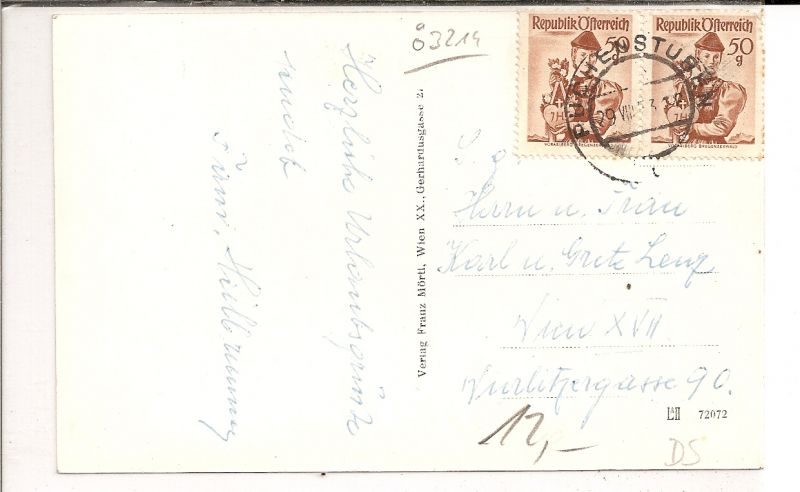 Ö3214
Republik Österreich
50
g
VORARLBERG BREGENZERWALD
Republik Österreich
50
g
VORARLBERG BREGENZERWALD
PUCHENSTUBEN
29 VIII 53
Herzliche Urlaubsgrüße
sendet
Fam.
Verlag Franz Mörtl, Wien XX., Gerhardusgasse 27
Herrn u. Frau
Karl u. Grete Lenz
Wien XVII
Wurlitzergasse 90.
72072
12,-
DS